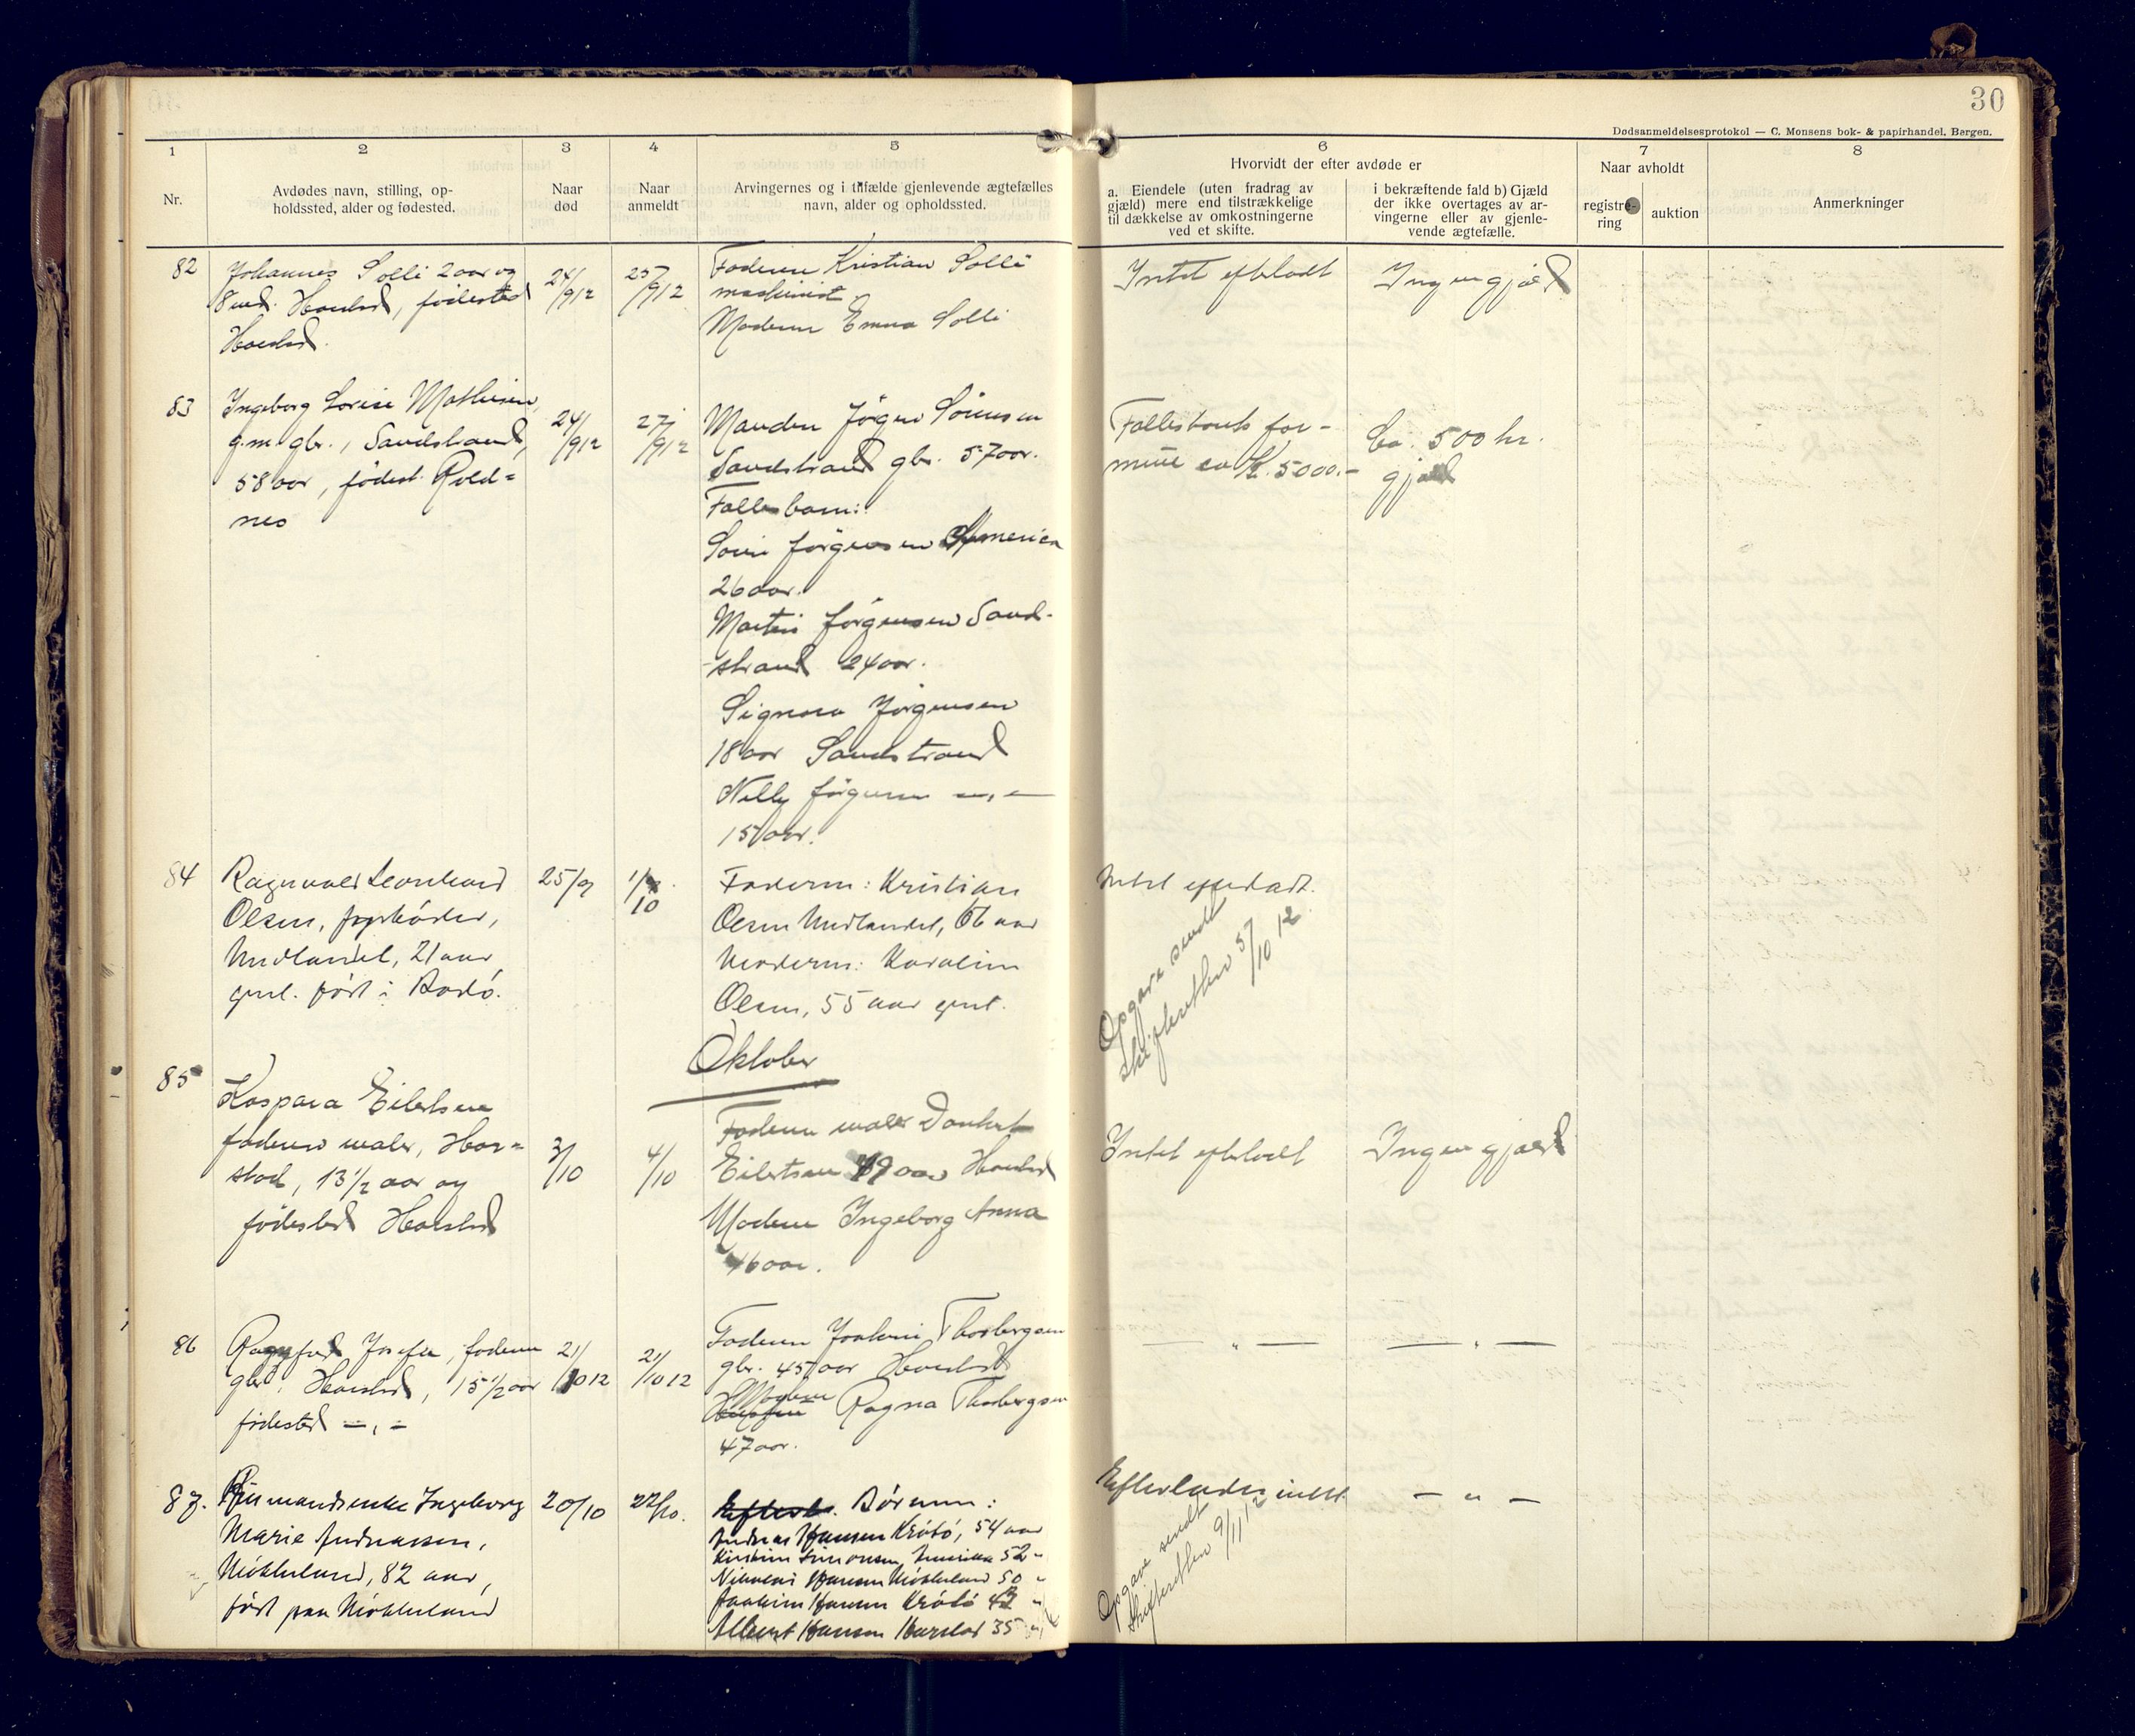 30
Dødsanmeldelsesprotokol — C. Monsens bok- & papirhandel, Bergen.
1 2 3 4 5 6 7 8
Nr.
Avdødes navn, stilling, op-
holdssted, alder og fødested.
Naar
død
Naar
anmeldt
Arvingernes og i tilfælde gjenlevende ægtefælles
navn, alder og opholdssted.
Hvorvidt der efter avdøde er
a. Eiendele (uten fradrag av
gjæld) mere end tilstrækkelige
til dækkelse av omkostningerne
ved et skifte.
i bekræftende fald b) Gjæld
der ikke overtages av ar-
vingerne eller av gjenle-
vende ægtefælle.
Naar avholdt
registre-
ring
auktion
Anmerkninger
82
Johannes Solli 2 aar og
8 md. Harstad, fødested
Harstad.
24/9 12
25/9 12
Faderen Kristian Solli
maskinist
Moderen Emma Solli
Intet efterladt
Ingen gjæld
83
Ingeborg Lovise Mathisen,
g.m. gbr., Sandstrand,
58 aar, fødest. Rold=
nes
24/9 12
27/9 12
Manden Jørgen Sørensen
Sandstrand gbr. 57 aar.
Fellesbarn:
Sørin Jørgensen Amerika
26 aar.
Martin Jørgensen Sand-
strand 24 aar.
Signora Jørgensen
18 aar Sandstrand
Nelly Jørgensen —„—
15 aar.
Fellesboets for-
mue ca Kr. 5000.-
Ca. 500 kr.
gjæld
84
Ragnvald Leonhard
Olsen, fyrbøder,
Medlandet, 21 aar
gml. født i Bodø.
25/9
1/10
Faderen: Kristian
Olsen Medlandet, 66 aar
Moderen: Karoline
Olsen, 55 aar gml.
Intet efterladt.
Opgave sendt
skifteretten 5/10 12
Oktober
85
Kaspara Eilertsen
faderen maler, Har=
stad, 13 1/2 aar og
fødested Harstad
3/10
4/10
Faderen maler Dankert
Eilertsen 49 aar Harstad
Moderen Ingeborg Anna
46 aar.
Intet efterladt
Ingen gjæld
86
Ragnfred Josefa, faderen
gbr., Harstad, 15 1/2 aar
fødested —„—
21/10 12
21/10 12
Faderen Joakim Thorbergsen
gbr. 45 aar Harstad
Moderen Ragna Thorbergsen
47 aar.
— „ —
— „ —
87.
Husmandsenke Ingeborg
Marie Andreassen,
Møkkeland, 82 aar,
født paa Møkkeland
20/10
22/10.
Børnene:
Andreas Hansen Krøtø, 54 aar
Kristine Simonsen, Amerika 52 "
Nikolai Hansen Møkkeland 50 "
Joakim Hansen Krøtø 43 "
Albert Hansen Harstad 35 "
Efterlader intet.
— „ —
Opgave sendt
skifteretten 9/11 12